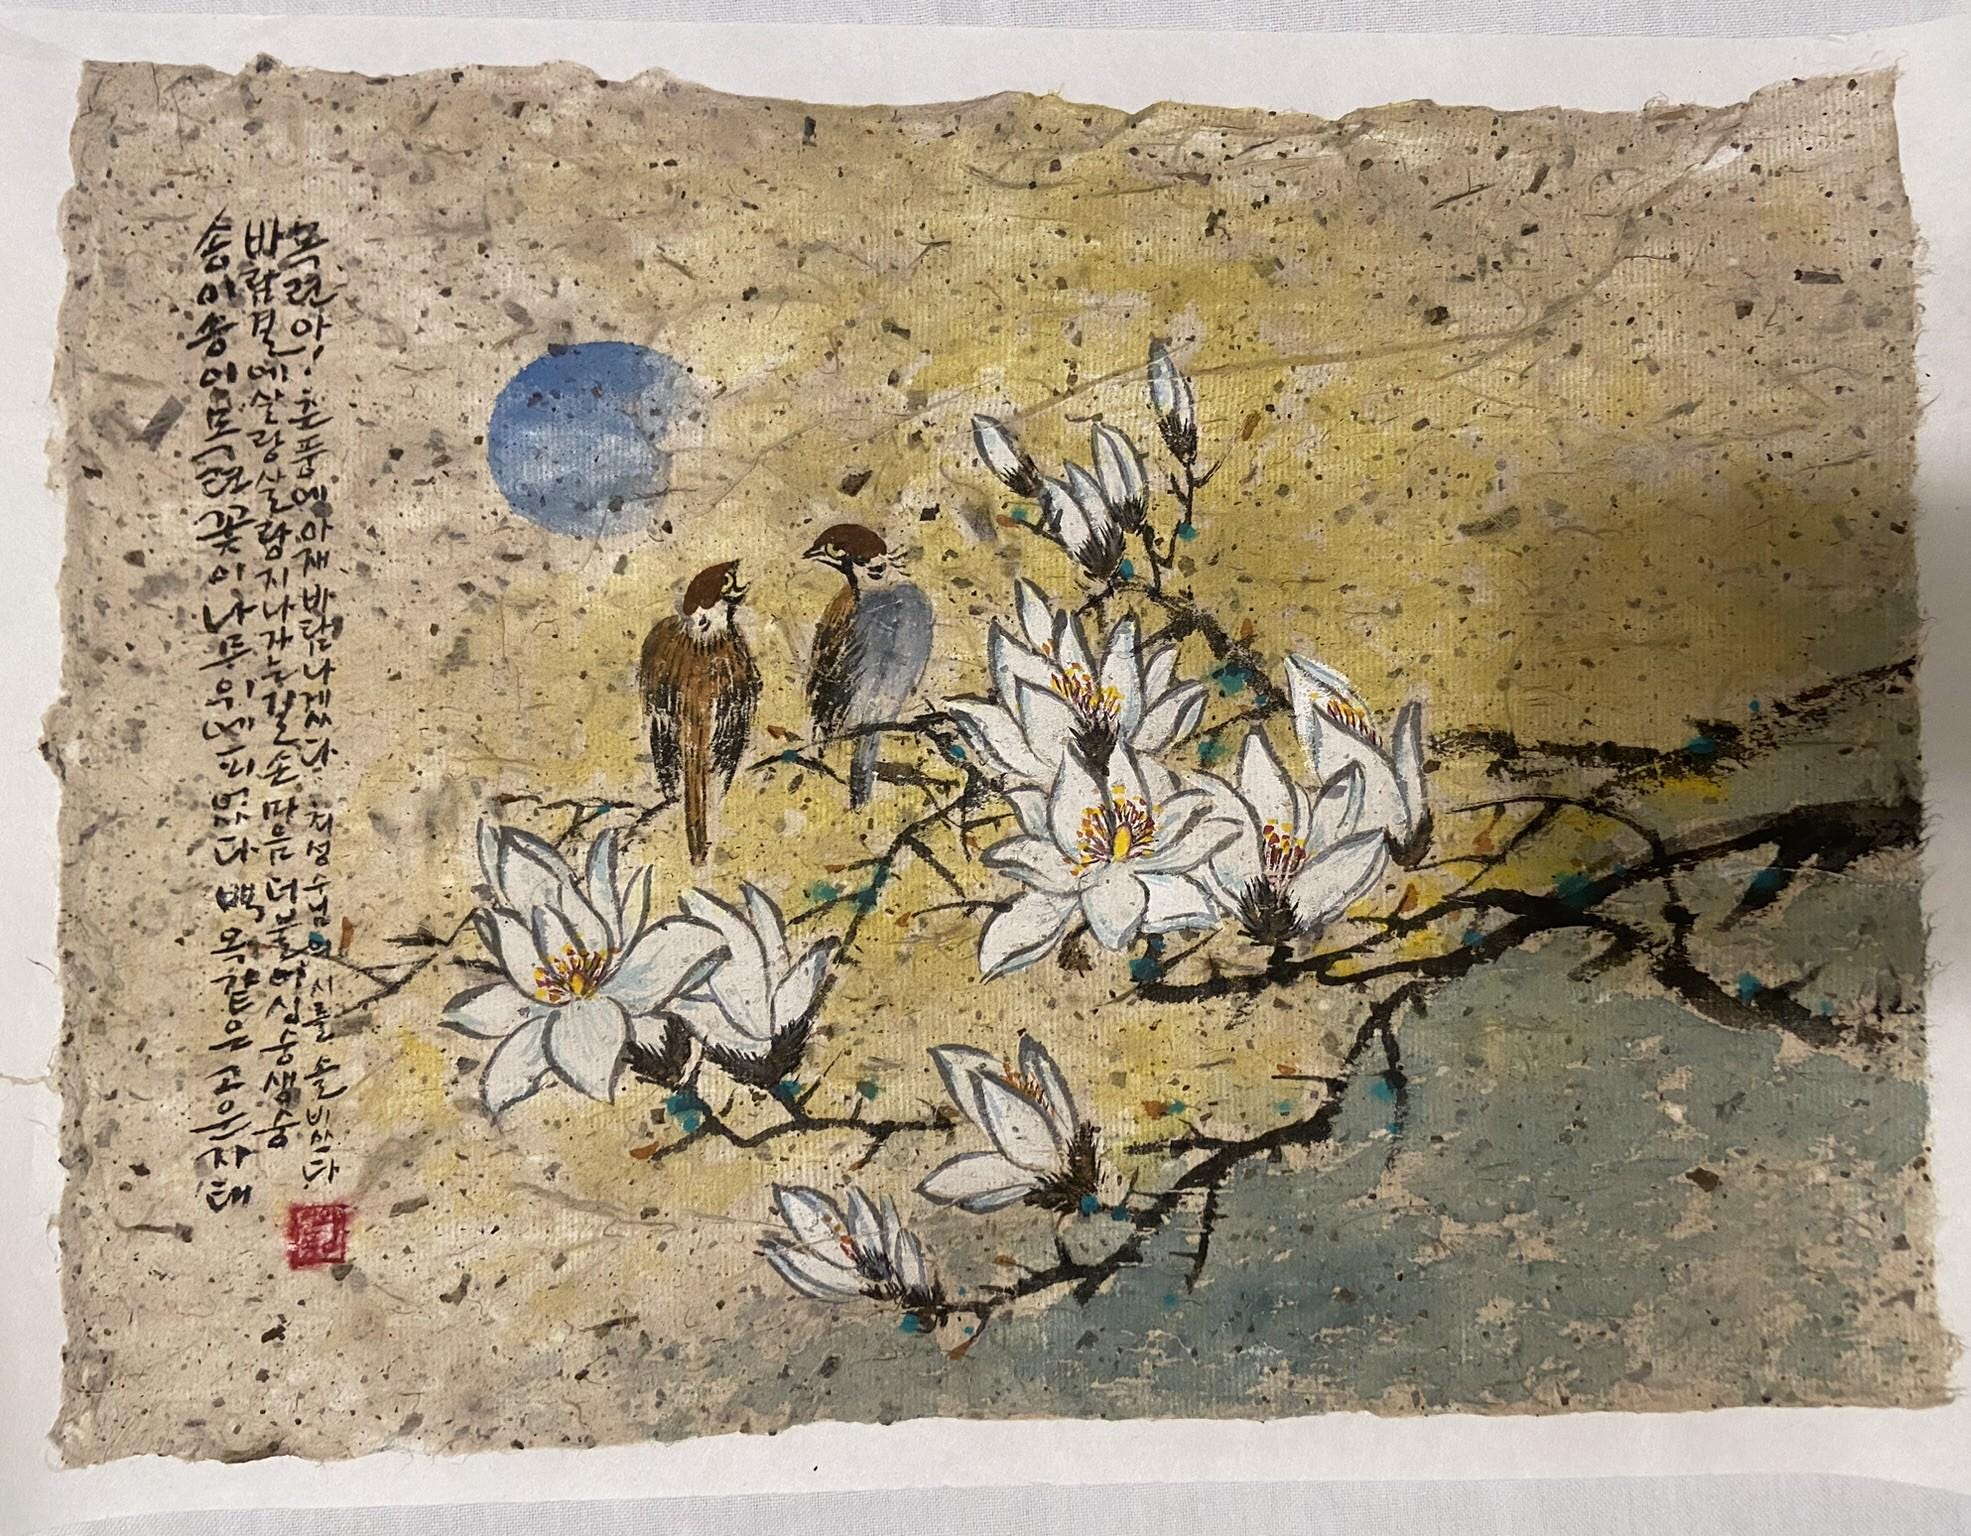 송이송이 목련꽃이 나무위에 피었다 백옥같은 고운자태
바람결에 살랑살랑 지나가는 길손 마음 더불어 싱숭생숭
목련아! 춘풍에 아재 바람나겠다 최성수님의 시를 솔비쓰다